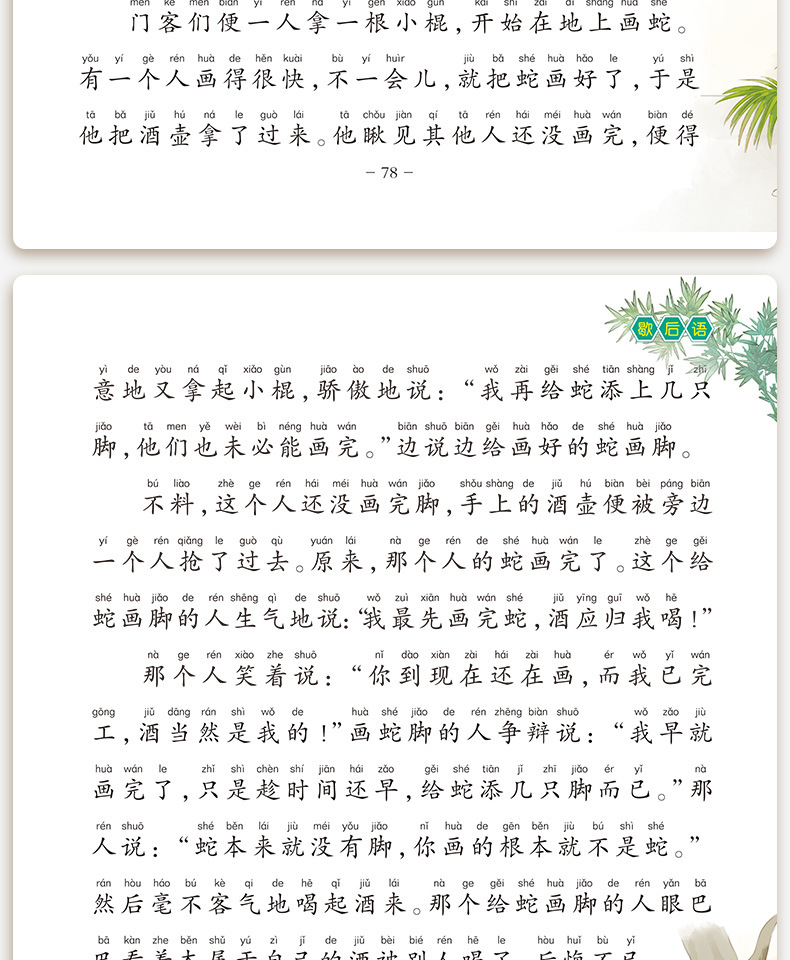 mén kè men biàn yì rén ná yì gēn xiǎo gùn kāi shǐ zài dì shàng huà shé
门客们便一人拿一根小棍，开始在地上画蛇。
yǒu yí gè rén huà de hěn kuài bù yí huìr jiù bǎ shé huà hǎo le yú shì
有一个人画得很快，不一会儿，就把蛇画好了，于是
tā bǎ jiǔ hú ná le guò lái tā chǒu jiàn qí tā rén hái méi huà wán biàn dé
他把酒壶拿了过来。他瞅见其他人还没画完，便得
– 78 –
歇后语
yì de yòu ná qǐ xiǎo gùn jiāo ào de shuō wǒ zài gěi shé tiān shàng jǐ zhī
意地又拿起小棍，骄傲地说：“我再给蛇添上几只
jiǎo tā men yě wèi bì néng huà wán biān shuō biān gěi huà hǎo de shé huà jiǎo
脚，他们也未必能画完。”边说边给画好的蛇画脚。
bú liào zhè ge rén hái méi huà wán jiǎo shǒu shàng de jiǔ hú biàn bèi páng biān
不料，这个人还没画完脚，手上的酒壶便被旁边
yí gè rén qiǎng le guò qù yuán lái nà ge rén de shé huà wán le zhè ge gěi
一个人抢了过去。原来，那个人的蛇画完了。这个给
shé huà jiǎo de rén shēng qì de shuō wǒ zuì xiān huà wán shé jiǔ yīng guī wǒ hē
蛇画脚的人生气地说：“我最先画完蛇，酒应归我喝！”
nà ge rén xiào zhe shuō nǐ dào xiàn zài hái zài huà ér wǒ yǐ wán
那个人笑着说：“你到现在还在画，而我已完
gōng jiǔ dāng rán shì wǒ de huà shé jiǎo de rén zhēng biàn shuō wǒ zǎo jiù
工，酒当然是我的！”画蛇脚的人争辩说：“我早就
huà wán le zhǐ shì chèn shí jiān hái zǎo gěi shé tiān jǐ zhī jiǎo ér yǐ nà
画完了，只是趁时间还早，给蛇添几只脚而已。”那
rén shuō shé běn lái jiù méi yǒu jiǎo nǐ huà de gēn běn jiù bú shì shé
人说：“蛇本来就没有脚，你画的根本就不是蛇。”
rán hòu háo bú kè qi de hē qǐ jiǔ lái nà ge gěi shé huà jiǎo de rén yǎn bā
然后毫不客气地喝起酒来。那个给蛇画脚的人眼巴
bā kàn zhe běn shǔ yú zì jǐ de jiǔ bèi bié rén hē le hòu huǐ bù yǐ
巴看着本属于自己的酒被别人喝了，后悔不已